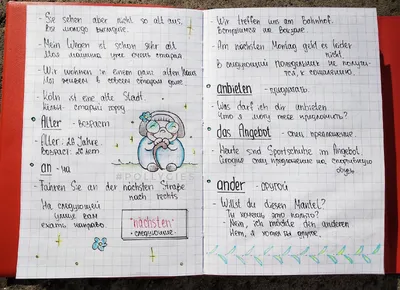 - Sie sehen aber nicht so alt aus.
Вы молодо выглядите.
- Mein Wagen ist schon sehr alt.
Моя машина уже очень старая
- Wir wohnen in einem ganz alten Haus
Мы живем в совсем старом доме
- Köln ist eine alte Stadt.
Кёльн - старый город
Alter - возраст
- Alter: 20 Jahre.
Возраст: 20 лет
an - на
- Fahren Sie an der nächsten Straße
nach rechts
На следующей
улице вам
ехать направо
"nächsten"
- следующие
- Wir treffen uns am Bahnhof.
Встретимся на вокзале
- Am nächsten Montag geht es leider
nicht
В следующий понедельник не получит-
ся, к сожалению.
anbieten - предлагать.
- Was darf ich dir anbieten
Что я могу тебе предложить?
das Angebot - спец. предложение.
- Heute sind Sportschuhe im Angebot.
Сегодня спец. предложение на спортивную
обувь
ander - другой
- Willst du diesen Mantel?
Ты хочешь это пальто?
- Nein, ich möchte den anderen
Нет, я хотел бы другое.